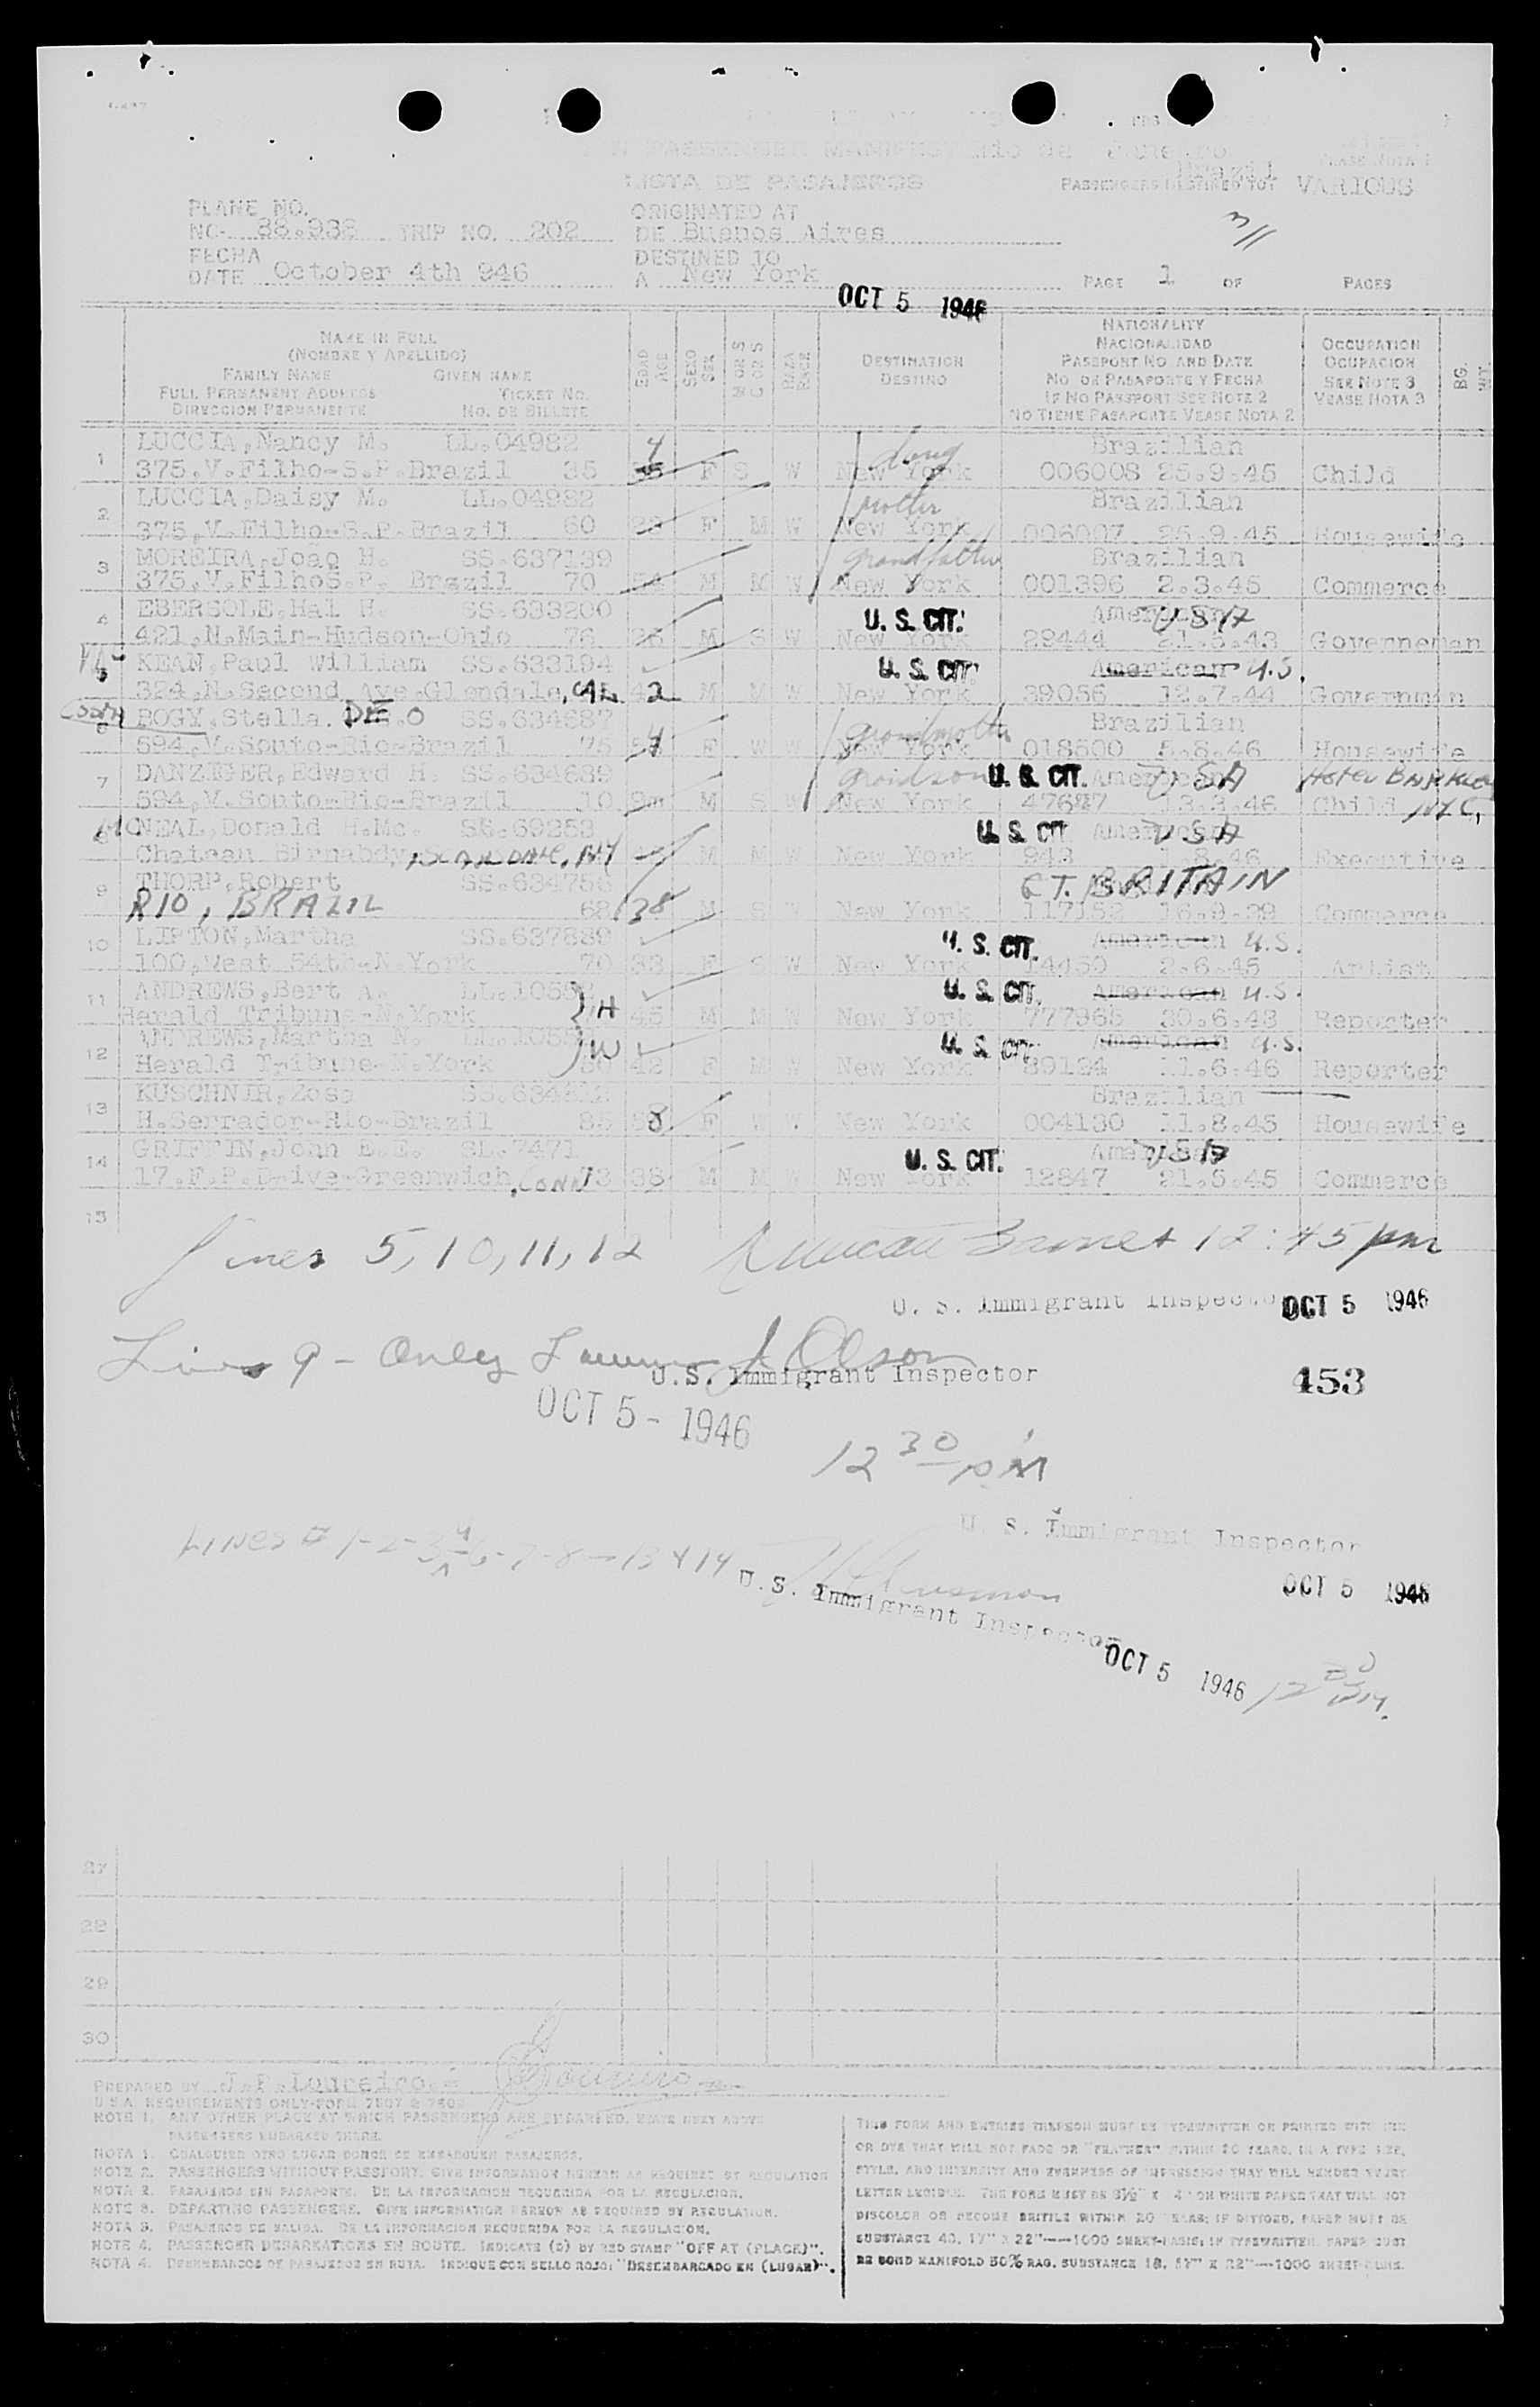 PASSENGER MANIFEST Rio de
Brazil
LISTA DE PASAJEROS
PASSENGERS DESTINED TO: VARIOUS
VEASE NOTA 1
PLANE NO.
NO. 88.938 TRIP NO. 202
ORIGINATED AT
DE Buenos Aires
3/11
FECHA
DATE October 4th 946
DESTINED TO
A New York
PAGE 1 OF PAGES
OCT 5 1946
NAME IN FULL
(NOMBRE Y APELLIDO)
FAMILY NAME GIVEN NAME
FULL PERMANENT ADDRESS TICKET NO.
DIRECCION PERMANENTE NO. DE BILLETE
EDAD AGE
SEXO SEX
M OR S
C OR S
RAZA RACE
DESTINATION
DESTINO
NATIONALITY
NACIONALIDAD
PASSPORT NO AND DATE
NO. DE PASAPORTE Y FECHA
IF NO PASSPORT SEE NOTE 2
NO TIENE PASAPORTE VEASE NOTA 2
OCCUPATION
OCUPACION
SEE NOTE 3
VEASE NOTA 3
BG.
WT.
1 LUCCIA, Nancy M. LL.04982 4 Brazilian
375.V.Filho-S.P.Brazil 35 F S W New York 006008 25.9.45 Child
2 LUCCIA, Daisy M. LL.04982 mother Brazilian
375,V.Filho-S.P.Brazil 60 F M W New York 006007 25.9.45 Housewife
3 MOREIRA, Joao H. SS.637139 grandfather Brazilian
375.V.FilhoS.P. Brazil 70 54 M M W New York 001396 2.3.45 Commerce
4 EBERSOLE, Hal H. SS.633200 U. S. CIT. American USA
421.N.Main-Hudson-Ohio 76 26 M S W New York 29444 21.6.43 Governeman
5 KEAN.Paul William SS.633194 U. S. CIT. American U.S.
324.N.Second Ave.Glendale, CAL 42 M M W New York 39056 12.7.44 Governmen
6 BOGY.Stella. DE O SS.634687 grandmother Brazilian
594,V.Souto-Rio-Brazil 75 54 F W W New York 018500 5.8.46 Housewife
7 DANZIGER, Edward H. SS.634689 grandson U. S. CIT. American USA HOTEL
594,V.Souto-Rio-Brazil 10 9m M S W New York 47687 13.3.46 Child NYC,
8 MC NEAL, Donald H.Mc. SS.69253 U. S. CIT American USA
Chateau M M W New York 943 Executive
9 THORP, Robert SS.634756 GT. BRITAIN
RIO, BRAZIL 68 38 M S W New York 117152 16.9.39 Commerce
10 LIPTON, Martha SS.637889 U. S. CIT. American U.S.
100,West 54th-N.York 70 33 F S W New York 14450 2.6.45 Artist
11 ANDREWS, Bert A. LL.10552 H U. S. CIT. American U.S.
Herald Tribune-N.York 45 M M W New York 777365 30.6.43 Reporter
12 ANDREWS, Martha N. W U. S. CIT. American U.S.
Herald Tribune-N.York 50 42 F M W New York 89124 11.6.46 Reporter
13 KUSCHNIR, Zosa Brazilian
H.Serrador-Rio-Brazil 85 58 F W W New York 004130 11.8.45 Housewife
14 GRIFFIN, John E.E. SL.7471 U. S. CIT. American USA
17.F.P.Drive-Greenwich, CONN 73 38 M M W New York 12847 21.5.45 Commerce
15
Lines 5, 10, 11, 12 12:45 pm
U. S. Immigrant Inspector OCT 5 1946
Line 9 - Only J Olson
U.S. Immigrant Inspector
453
OCT 5 - 1946
12 30 pm
U. S. Immigrant Inspector
Lines # 1-2-3-4-6-7-8-13 & 14
U.S. Immigrant Inspector
OCT 5 1946
OCT 5 1946 12 30 P.M.
27
28
29
30
PREPARED BY J.P.Loureiro.-
U.S.A. REQUIREMENTS ONLY-FORM 7507 & 7508
NOTE 1. ANY OTHER PLACE AT WHICH PASSENGERS ARE EMBARKED, STATE NEXT ABOVE
PASSENGERS EMBARKED THERE.
NOTA 1. CUALQUIER OTRO LUGAR DONDE SE EMBARQUEN PASAJEROS.
NOTE 2. PASSENGERS WITHOUT PASSPORT. GIVE INFORMATION HEREON AS REQUIRED BY REGULATION
NOTA 2. PASAJEROS SIN PASAPORTE. DE LA INFORMACION REQUERIDA POR LA REGULACION.
NOTE 3. DEPARTING PASSENGERS. GIVE INFORMATION HEREON AS REQUIRED BY REGULATION.
NOTA 3. PASAJEROS DE SALIDA. DE LA INFORMACION REQUERIDA POR LA REGULACION.
NOTE 4. PASSENGER DEBARKATIONS EN ROUTE. INDICATE (D) BY RED STAMP "OFF AT (PLACE)".
NOTA 4. DESEMBARCOS DE PASAJEROS EN RUTA. INDIQUE CON SELLO ROJO: "DESEMBARCADO EN (LUGAR)".
THIS FORM AND ENTRIES THEREON MUST BE TYPEWRITTEN OR PRINTED WITH INK
OR DYE THAT WILL NOT FADE OR "FEATHER" WITHIN 20 YEARS, IN A TYPE SIZE,
STYLE, AND INTENSITY AND EVENNESS OF IMPRESSION THAT WILL RENDER EVERY
LETTER LEGIBLE. THE FORM MUST BE 8½" X 14" ON WHITE PAPER THAT WILL NOT
DISCOLOR OR BECOME BRITTLE WITHIN 20 YEARS; IF DITTOED, PAPER MUST BE
SUBSTANCE 40, 17" X 22"—1000 SHEET-BASIS; IF TYPEWRITTEN, PAPER MUST
BE BOND MANIFOLD 50% RAG, SUBSTANCE 18, 17" X 22"—1000 SHEET-BASIS.